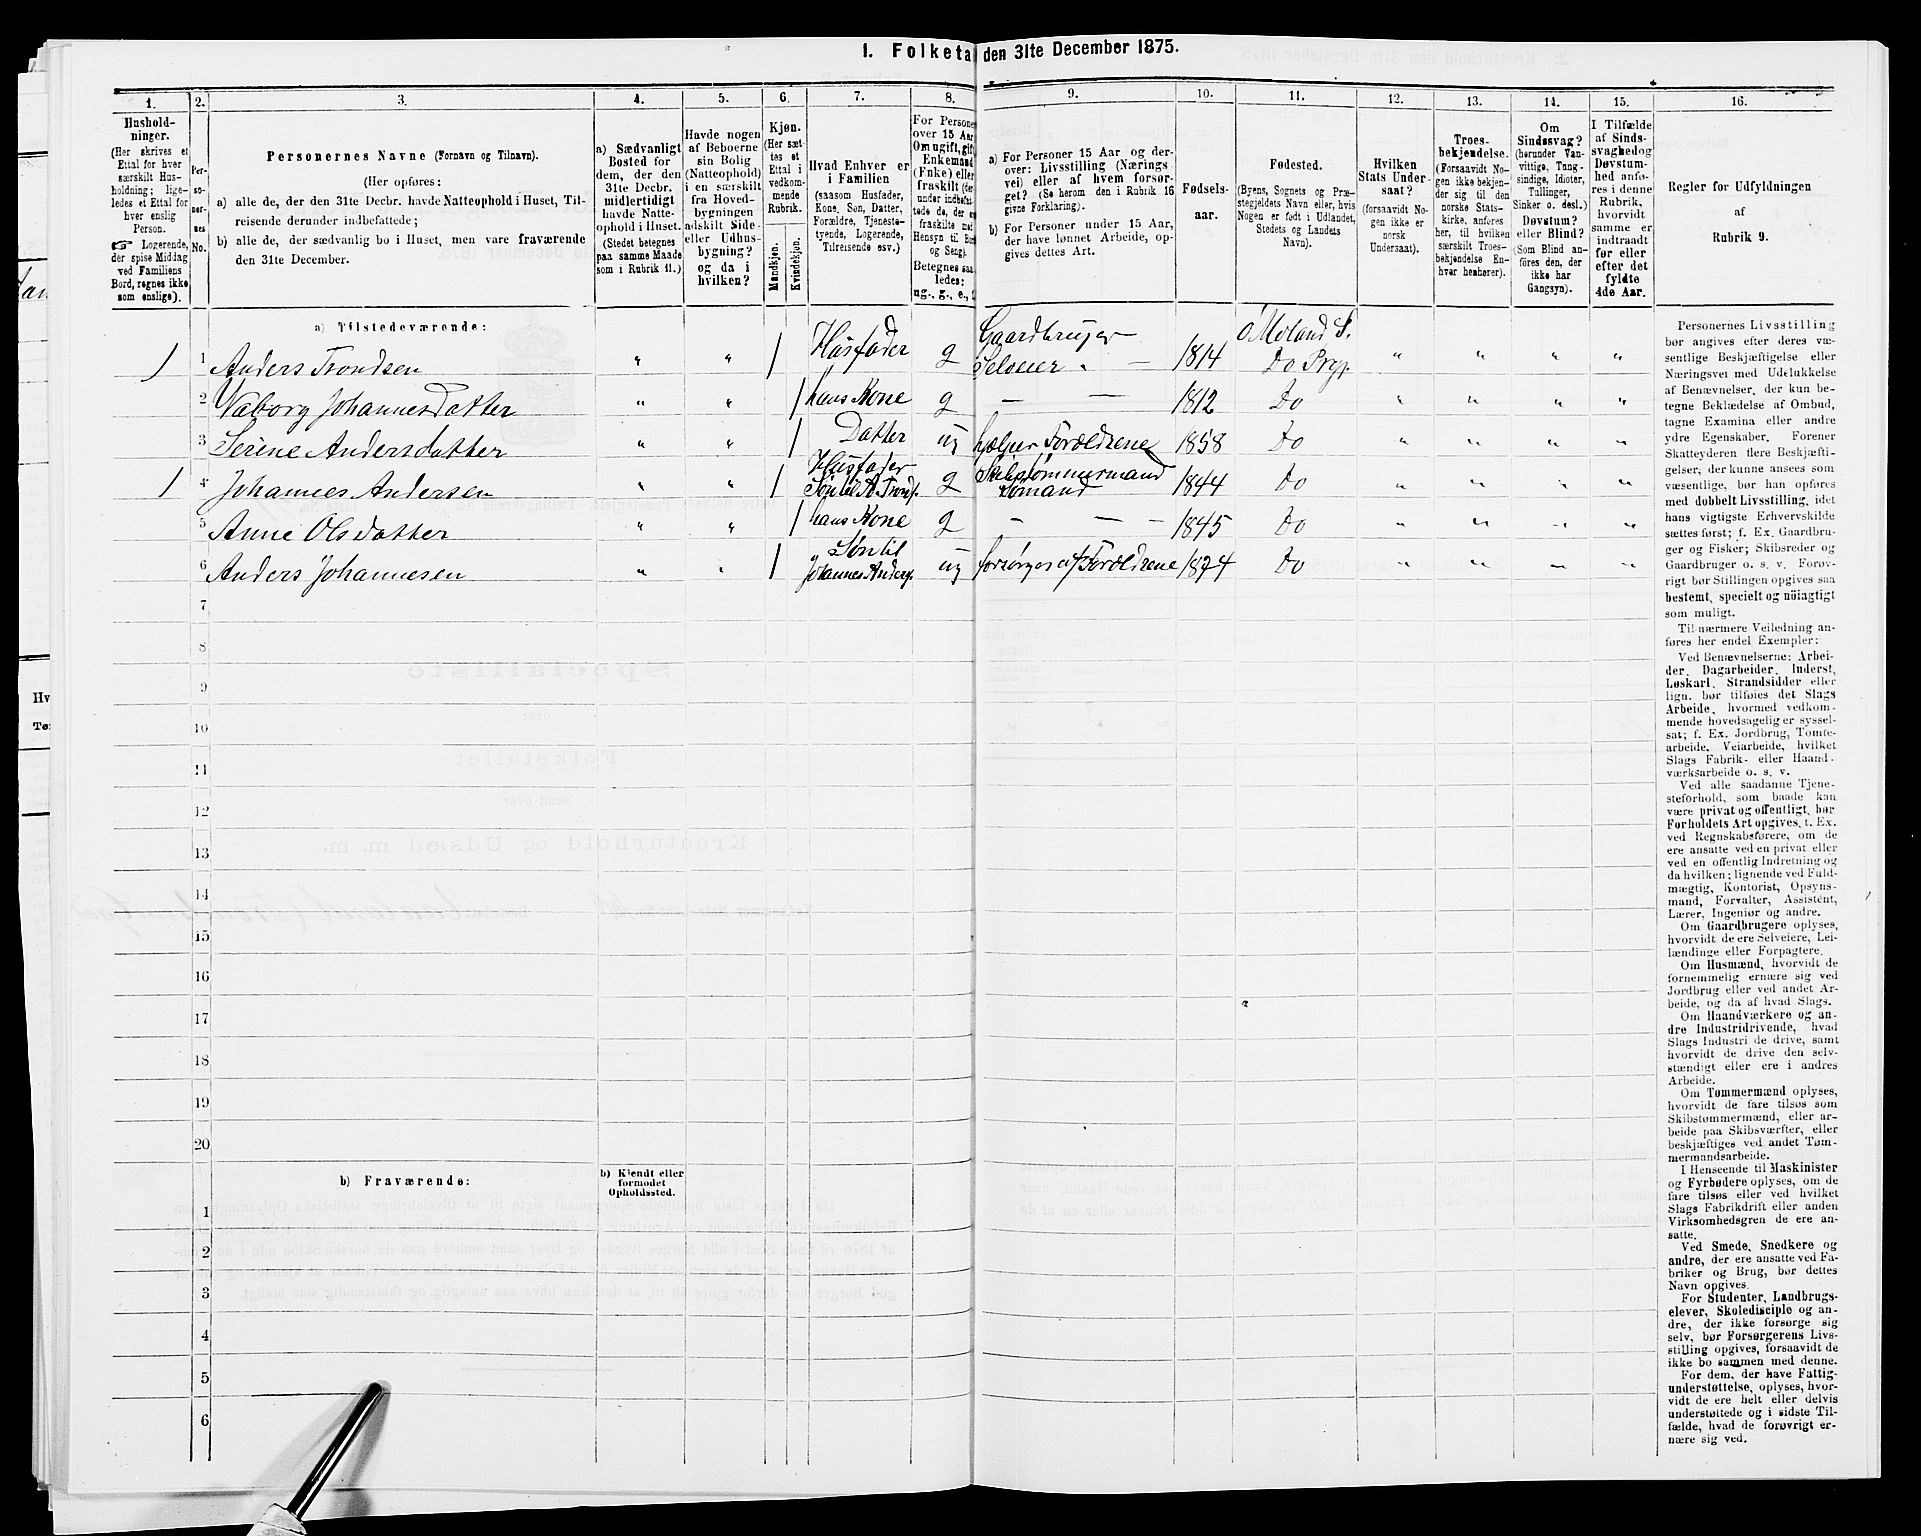 1. Folketa den 31te December 1875.
1. 2. 3. 4. 5. 6. 7. 8. 9. 10. 11. 12. 13. 14. 15. 16.
Hushold-
ninger.
(Her skrives et
Ettal for hver
særskilt Hus-
holdning; lige-
ledes et Ettal for
hver enslig
Person.
☞ Logerende,
der spise Middag
ved Familiens
Bord, regnes ikke
som enslige).
Per-
so-
ner-
nes
No.
Personernes Navne (Fornavn og Tilnavn).
(Her opføres:
a) alle de, der den 31te Decbr. havde Natteophold i Huset, Til-
reisende derunder indbefattede;
b) alle de, der sædvanlig bo i Huset, men vare fraværende
den 31te December.
a) Sædvanligt
Bosted for
dem, der den
31te Decbr.
midlertidigt
havde Natte-
ophold i Huset.
(Stedet betegnes
paa samme Maade
som i Rubrik 11.)
Havde nogen
af Beboerne
sin Bolig
(Natteophold)
i en særskilt
fra Hoved-
bygningen
adskilt Side-
eller Udhus-
bygning?
og da i
hvilken?
Kjøn.
(Her sæt-
tes et
Ettal i
vedkom-
mende
Rubrik.
Mandkjøn.
Kvindekjøn.
Hvad Enhver er
i Familien
(saasom Husfader,
Kone, Søn, Datter,
Forældre, Tjeneste-
tyende, Logerende,
Tilreisende osv.)
For Persone
over 15 Aar
Om ugift, gift
Enkemand
(Enke) eller
fraskilt (der
under indbefat-
tede de, der er
fraskilte med
Hensyn til Bo
og Seng).
Betegnes saa
ledes:
ug., g., e.,
a) For Personer 15 Aar og der-
over: Livsstilling (Nærings
vei) eller af hvem forsør-
get? (Se herom den i Rubrik 16
givne Forklaring).
b) For Personer under 15 Aar,
der have lønnet Arbeide, op-
gives dettes Art.
Fødsels-
aar.
Fødested.
(Byens, Sognets og Præ-
stegjeldets Navn eller, hvis
Nogen er født i Udlandet,
Stedets og Landets
Navn).
Hvilken
Stats Under-
saat?
(forsaavidt No-
gen ikke er
norsk
Undersaat).
Troes-
bekjendelse.
(Forsaavidt No-
gen ikke bekjen-
der sig til den
norske Stats-
kirke, anføres
her, til hvilken
særskilt Troes-
bekjendelse En-
hver henhører).
Om
Sindssvag?
(herunder Van-
vittige, Tung-
sindige, Idioter,
Tullinger,
Sinker o. desl.)
Døvstum?
eller Blind?
(Som Blind an-
føres den, der
ikke har
Gangsyn).
I Tilfælde
af Sinds-
svaghed og
Døvstum-
hed anfø-
res i denne
Rubrik,
hvorvidt
samme er
indtraadt
før eller
efter det
fyldte
4de Aar.
Regler for Udfyldningen
af
Rubrik 9.
a) Tilstedeværende:
1 1 Anders Trondsen " " 1 Husfader g Gaardbruger Selveier. — 1814 O Moland S. Do Prgj. " " " "
2 Waborg Johannesdatter " " 1 hans Kone g — — 1812 Do " " " "
3 Serine Andersdatter " " 1 Datter ug hjælper Forældrene 1858 Do " " " "
1 4 Johannes Andersen " " 1 Husfader Søn til A. Tronds. g Skibstømmermand Sømand 1844 Do " " " "
5 Anne Olsdatter " " 1 hans Kone g — — — 1845 Do " " " "
6 Anders Johannesen " " 1 Søn til Johannes Anders. ug forsørges af Forældrene 1874 Do " " " "
7
8
9
10
11
12
13
14
15
16
17
18
19
20
b) Fraværende:
b) Kjendt eller
formodet
Opholdssted.
1
2
3
4
5
6
Personernes Livsstilling
bør angives efter deres væ-
sentlige Beskjæftigelse eller
Næringsvei med Udelukkelse
af Benævnelser, der kun be-
tegne Beklædelse af Ombud,
tagne Examina eller andre
ydre Egenskaber. Forener
Skatteyderen flere Beskjæfti-
gelser, der kunne ansees som
væsentlige, bør han opføres
med dobbelt Livsstilling, idet
hans vigtigste Erhvervskilde
sættes først; f. Ex. Gaardbru-
ger og Fisker; Skibsreder og
Gaardbruger o. s. v. Forøv-
rigt bør Stillingen opgives saa
bestemt, specielt og nöiagtigt
som muligt.
Til nærmere Veiledning an-
føres her endel Exempler:
Ved Benævnelserne: Arbei-
der, Dagarbeider, Inderst,
Løskarl, Strandsidder eller
lign. bør tilføies det Slags
Arbeide, hvormed vedkom-
mende hovedsagelig er syssel-
sat; f. Ex. Jordbrug, Tomte-
arbeide, Veiarbeide, hvilket
Slags Fabrik- eller Haand-
værksarbeide o. s. v.
Ved alle saadanne Tjene-
steforhold, som baade kan
være privat og offentligt, bør
Forholdets Art opgives, t. Ex.
ved Regnskabsførere, om de
ere ansatte ved en privat eller
ved en offentlig Indretning og
da hvilken; lignende ved Fuld-
mægtig, Kontorist, Opsyns-
mand, Forvalter, Assistent,
Lærer, Ingeniør og andre.
Om Gaardbrugere oplyses,
hvorvidt de ere Selveiere, Lei-
lændinge eller Forpagtere.
Om Husmænd, hvorvidt de
fornemmelig ernære sig ved
Jordbrug eller ved andet Ar-
beide, og da af hvad Slags.
Om Haandværkere og an-
dre Industridrivende, hvad
Slags Industri de drive, samt
hvorvidt de drive den selv-
stændigt eller ere i andres
Arbeide.
Om Tømmermænd oplyses,
hvorvidt de fare tilsøs som
Skibstømmermænd, eller ar-
beide paa Skibsværfter, eller
beskjæftiges ved andet Tøm-
mermandsarbeide.
I Henseende til Maskinister
og Fyrbødere oplyses, om de
fare tilsøs eller ved hvilket
Slags Fabrikdrift eller anden
Virksomhedsgren de ere an-
satte.
Ved Smede, Snedkere og
andre, der ere ansatte ved Fa-
briker og Brug, bør dettes
Navn opgives.
For Studenter, Landbrugs-
elever, Skoledisciple og an-
dre, der ikke forsørge sig
selv, bør Forsørgerens Livs-
stilling opgives, forsaavidt de
ikke bo sammen med denne.
For dem, der have Fattig-
understøttelse, oplyses, hvor-
vidt de ere helt eller delvis
understøttede og i sidste Til-
fælde, hvad de forøvrigt er-
nære sig ved.